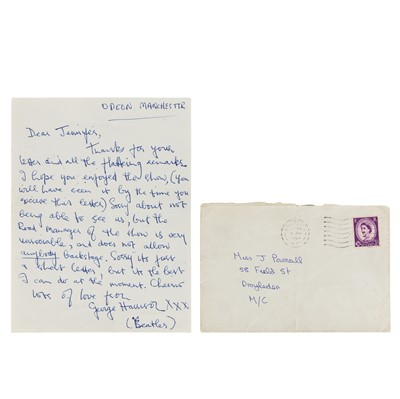 ODEON MANCHESTER
Dear Jennifer,
Thanks for your
letter and all the flattering remarks.
I hope you enjoyed the show, (You
will have seen it by the time you
receive this letter) Sorry about not
being able to see us, but the
Road Manager of the show is very
reasonable, and does not allow
anybody backstage. Sorry its just
a short letter, but its the best
I can do at the moment. Cheerio
lots of love from
George Harrison XXX
(Beatles)
Miss J Pownall
58 Field St
Droylesden
M/C